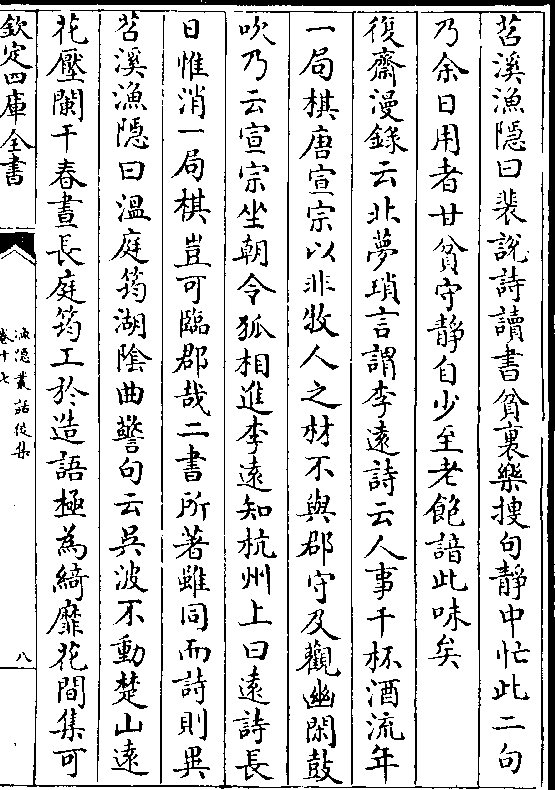 苕溪漁隱曰裴說詩讀書貧裏樂搜句靜中忙此二句
乃余日用者甘貧守靜自少至老飽諳此味矣
復齋漫錄云北夢瑣言謂李遠詩云人事千杯酒流年
一局棋唐宣宗以非牧人之材不與郡守及觀幽閑鼓
吹乃云宣宗坐朝令狐相進李遠知杭州上曰遠詩長
日惟消一局棋豈可臨郡哉二書所著雖同而詩則異
苕溪漁隱曰溫庭筠湖陰曲警句云吳波不動楚山遠
花壓闌干春晝長庭筠工於造語極為綺靡花間集可
欽定四庫全書
漁隱叢話後集
卷十七
八